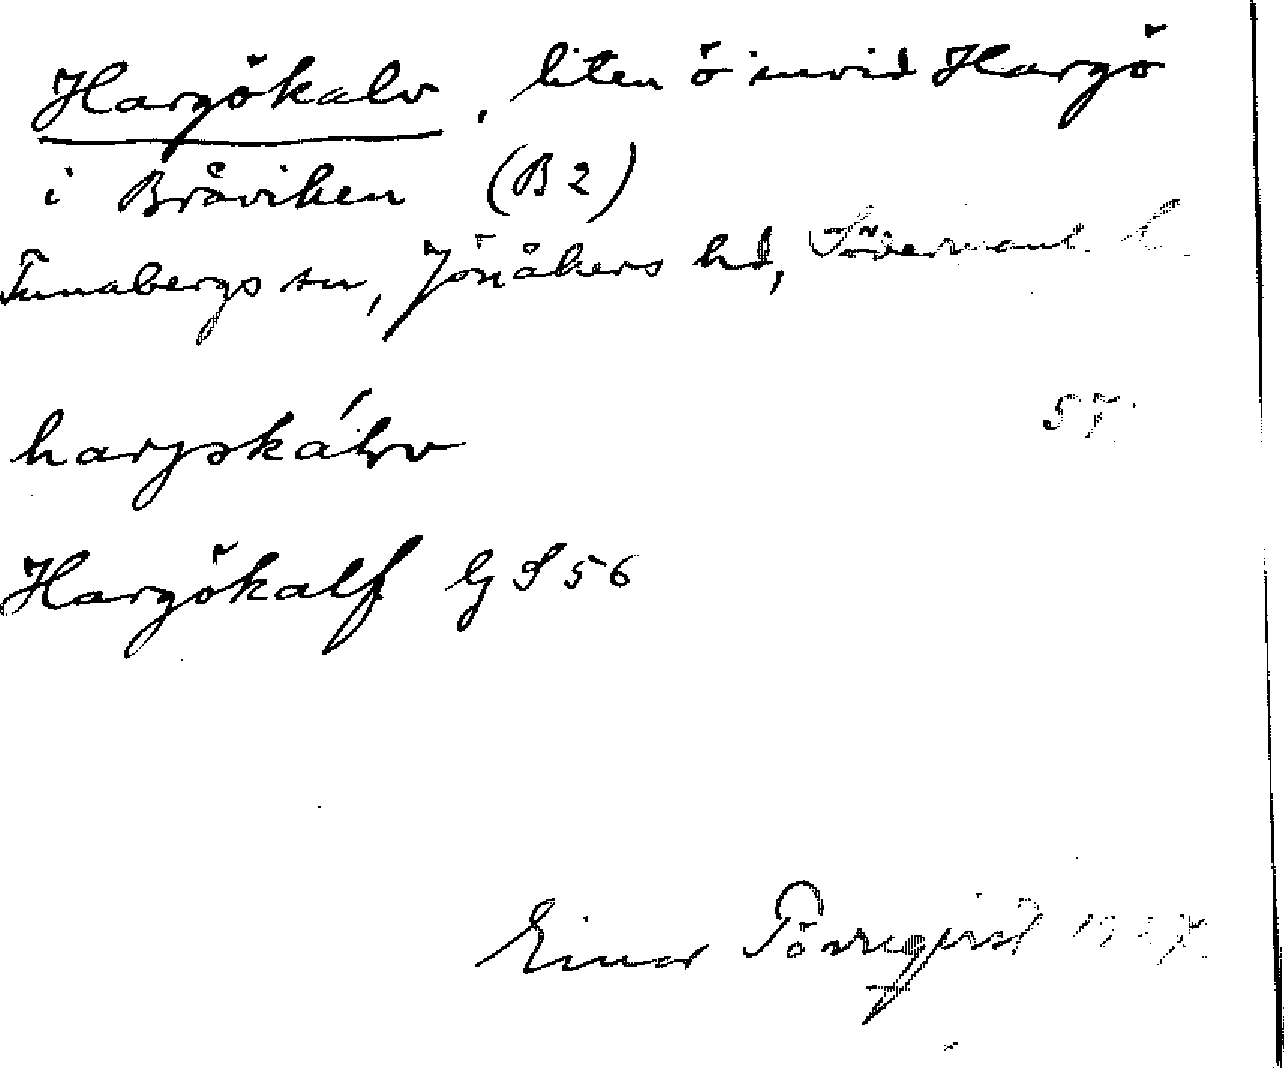 Hargökalv, liten ö invid Hargö
i Bråviken (B2)
Tunabergs sn, Jönåkers hd, Södermanl. l.
57.
hargskálv
Hargökalf GS56
Einar Törnqvist 1927.